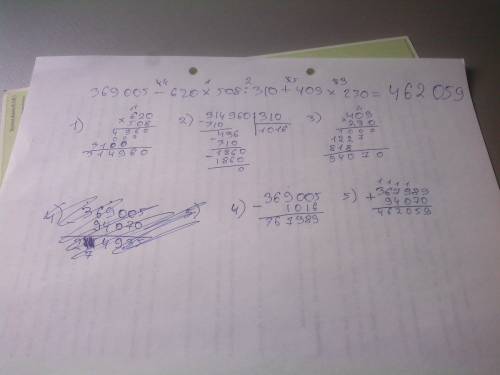 44 1 2 55 83
369005 - 620 × 508 : 310 + 409 × 230 = 462 059
1) 620
× 508
4960
000
3100
314960
2) 314960 310
- 310 1016
496
- 310
1860
- 1860
0
3) 409
× 230
000
1227
818
94070
4) 369005
- 1016
367989
5) 1 1 1 1
+ 367989
94070
462059